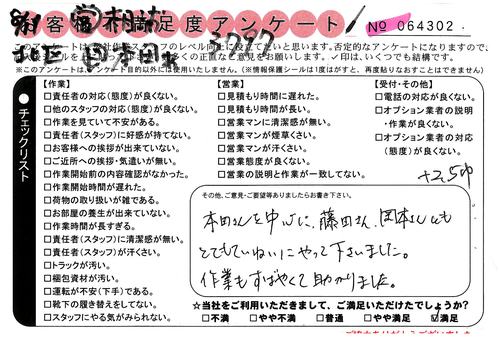 お客様不満足度アンケート
No 064302
3787
北区
※このアンケートは、アンケート目的以外には使用いたしません。(※情報保護シールは1度がはすと、再度貼りなおすことはできません)
チェックリスト
【作業】
□責任者の対応(態度)が良くない。
□他のスタッフの対応(態度)が良くない。
□作業を見ていて不安がある。
□責任者(スタッフ)に好感が持てない。
□お客様への挨拶が出来ていない。
□ご近所への挨拶・気遣いが無い。
□作業開始前の内容確認がなかった。
□作業開始時間が遅れた。
□荷物の取り扱いが雑である。
□お部屋の養生が出来ていない。
□作業時間が長すぎる。
□責任者(スタッフ)に清潔感が無い。
□責任者(スタッフ)が汗くさい。
□トラックが汚い。
□梱包資材が汚い。
□運転が不安(下手)である。
□靴下の履き替えをしてない。
□スタッフにやる気がみられない。
【営業】
□見積もり時間に遅れた。
□見積もり時間が長い。
□営業マンに清潔感が無い。
□営業マンが煙草くさい。
□営業マンが汗くさい。
□営業態度が良くない。
□営業の説明と作業が一致してない。
【受付・その他】
□電話の対応が良くない。
□オプション業者の説明
・作業が良くない。
□オプション業者の対応
(態度)が良くない。
その他、ご意見・ご要望等ありましたらお書き下さい。
本田さんを中心に、藤田さん、岡本さんも
とてもていねいにやって下さいました。
作業もすばやくて助かりました。
☆当社をご利用いただきまして、ご満足いただけたでしょうか?
□不満 □やや不満 □普通 □やや満足 ☑満足